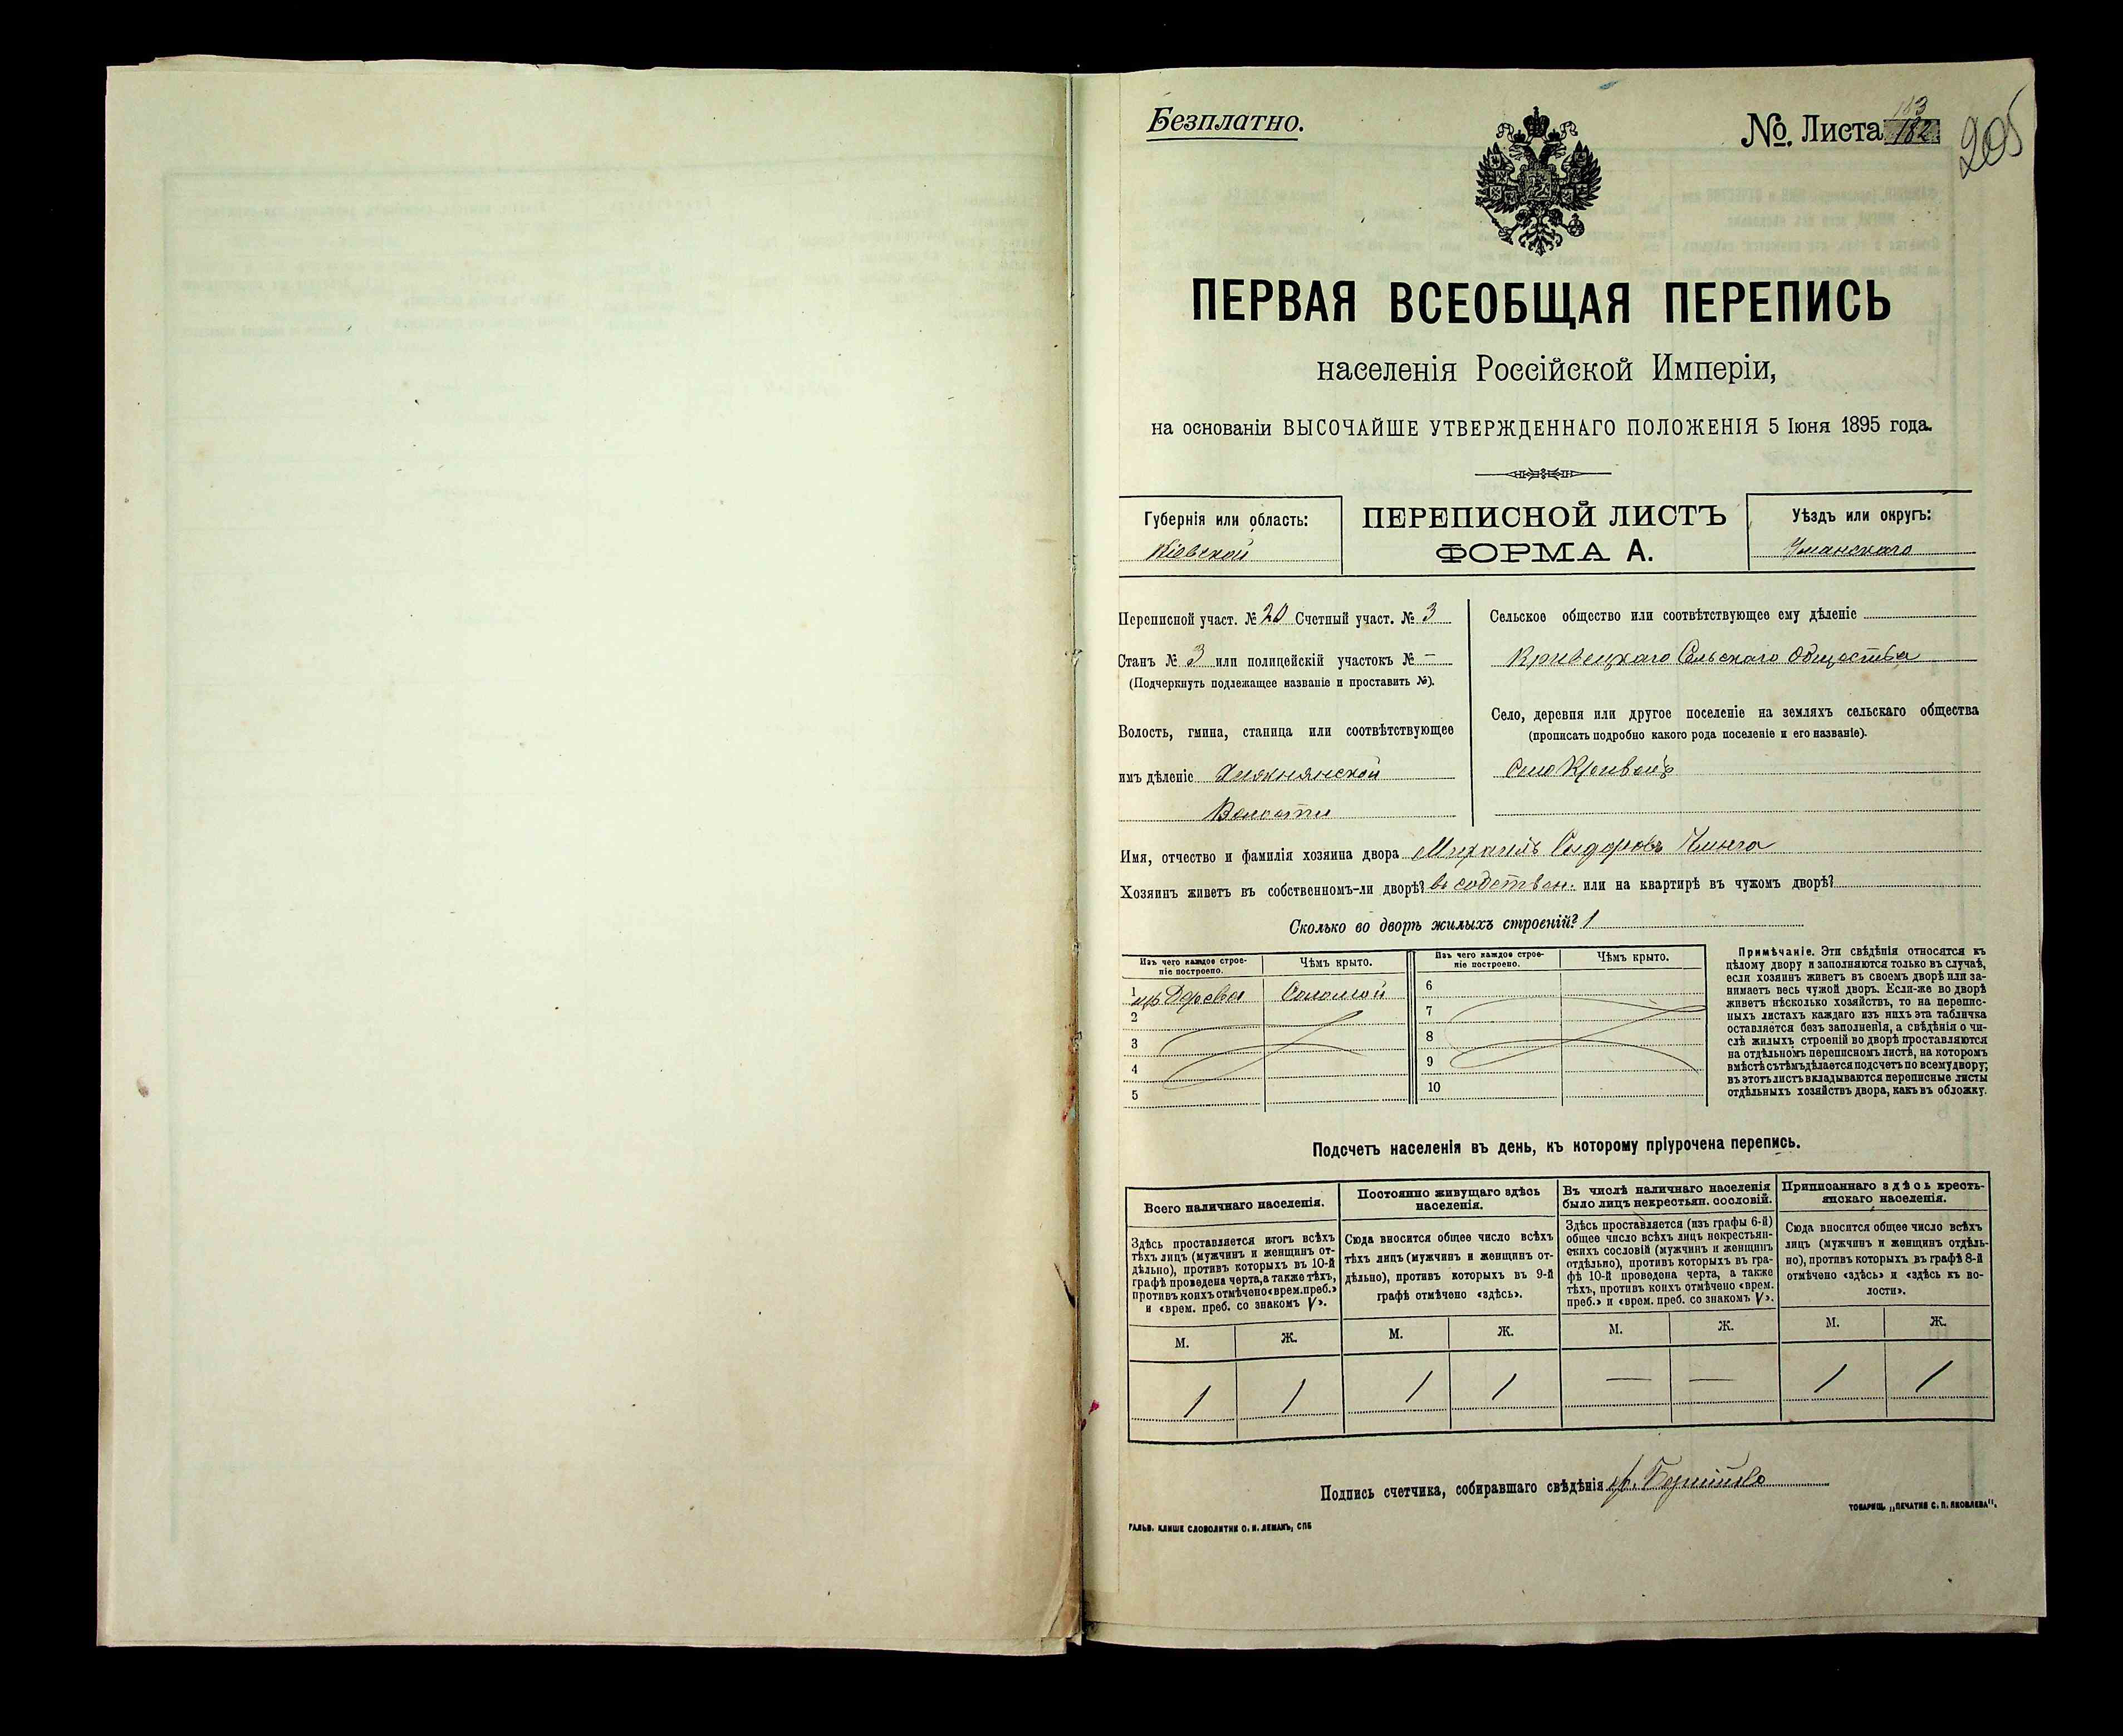 Безплатно.
№. Листа 183
182
205
ПЕРВАЯ ВСЕОБЩАЯ ПЕРЕПИСЬ
населенія Россійской Имперіи,
на основаніи ВЫСОЧАЙШЕ УТВЕРЖДЕННАГО ПОЛОЖЕНІЯ 5 Іюня 1895 года.
Губернія или область:
Кіевской
ПЕРЕПИСНОЙ ЛИСТЪ
ФОРМА А.
Уѣздъ или округъ:
Уманскаго
Переписной участ. № 20 Счетный участ. № 3
Станъ № 3 или полицейскій участокъ № —
(Подчеркнуть подлежащее названіе и проставить №).
Волость, гмина, станица или соотвѣтствующее
имъ дѣленіе
Волости
Сельское общество или соотвѣтствующее ему дѣленіе
Кривецкаго Сельскаго Общества
Село, деревня или другое поселеніе на земляхъ сельскаго общества
(прописать подробно какого рода поселеніе и его названіе).
Село Кривецъ
Имя, отчество и фамилія хозяина двора Михаилъ Сидоровъ
Хозяинъ живетъ въ собственномъ-ли дворѣ? въ собствен. или на квартирѣ въ чужомъ дворѣ?
Сколько во дворѣ жилыхъ строеній? 1
Изъ чего каждое строе-
ніе построено.
Чѣмъ крыто.
Изъ чего каждое строе-
ніе построено.
Чѣмъ крыто.
1 изъ Дерева Соломой
2
3
4
5
6
7
8
9
10
Примѣчаніе. Эти свѣдѣнія относятся къ
цѣлому двору и заполняются только въ случаѣ,
если хозяинъ живетъ въ своемъ дворѣ или за-
нимаетъ весь чужой дворъ. Если-же во дворѣ
живетъ нѣсколько хозяйствъ, то на перепис-
ныхъ листахъ каждаго изъ нихъ эта табличка
оставляется безъ заполненія, а свѣдѣнія о чи-
слѣ жилыхъ строеній во дворѣ проставляются
на отдѣльномъ переписномъ листѣ, на которомъ
вмѣстѣ съ тѣмъ дѣлается подсчетъ по всему двору;
въ этотъ листъ вкладываются переписные листы
отдѣльныхъ хозяйствъ двора, какъ въ обложку.
Подсчетъ населенія въ день, къ которому пріурочена перепись.
Всего наличнаго населенія.
Здѣсь проставляется итогъ всѣхъ
тѣхъ лицъ (мужчинъ и женщинъ от-
дѣльно), противъ которыхъ въ 10-й
графѣ проведена черта, а также тѣхъ,
противъ коихъ отмѣчено «врем. преб.»
и «врем. преб. со знакомъ V».
Постоянно живущаго здѣсь
населенія.
Сюда вносится общее число всѣхъ
тѣхъ лицъ (мужчинъ и женщинъ от-
дѣльно), противъ которыхъ въ 9-й
графѣ отмѣчено «здѣсь».
Въ числѣ наличнаго населенія
было лицъ некрестьян. сословій.
Здѣсь проставляется (изъ графы 6-й)
общее число всѣхъ лицъ некрестьян-
скихъ сословій (мужчинъ и женщинъ
отдѣльно), противъ которыхъ въ гра-
фѣ 10-й проведена черта, а также
тѣхъ, противъ коихъ отмѣчено «врем.
преб.» и «врем. преб. со знакомъ V».
Приписаннаго здѣсь кресть-
янскаго населенія.
Сюда вносится общее число всѣхъ
лицъ (мужчинъ и женщинъ отдѣль-
но), противъ которыхъ въ графѣ 8-й
отмѣчено «здѣсь» и «здѣсь къ во-
лости».
М. Ж. М. Ж. М. Ж. М. Ж.
1 1 1 1 — — 1 1
Подпись счетчика, собиравшаго свѣдѣнія
ТОВАРИЩ. „ПЕЧАТНЯ С. П. ЯКОВЛЕВА".
ГАЛЬВ. КЛИШЕ СЛОВОЛИТНИ О. И. ЛЕМАНЪ, СПБ